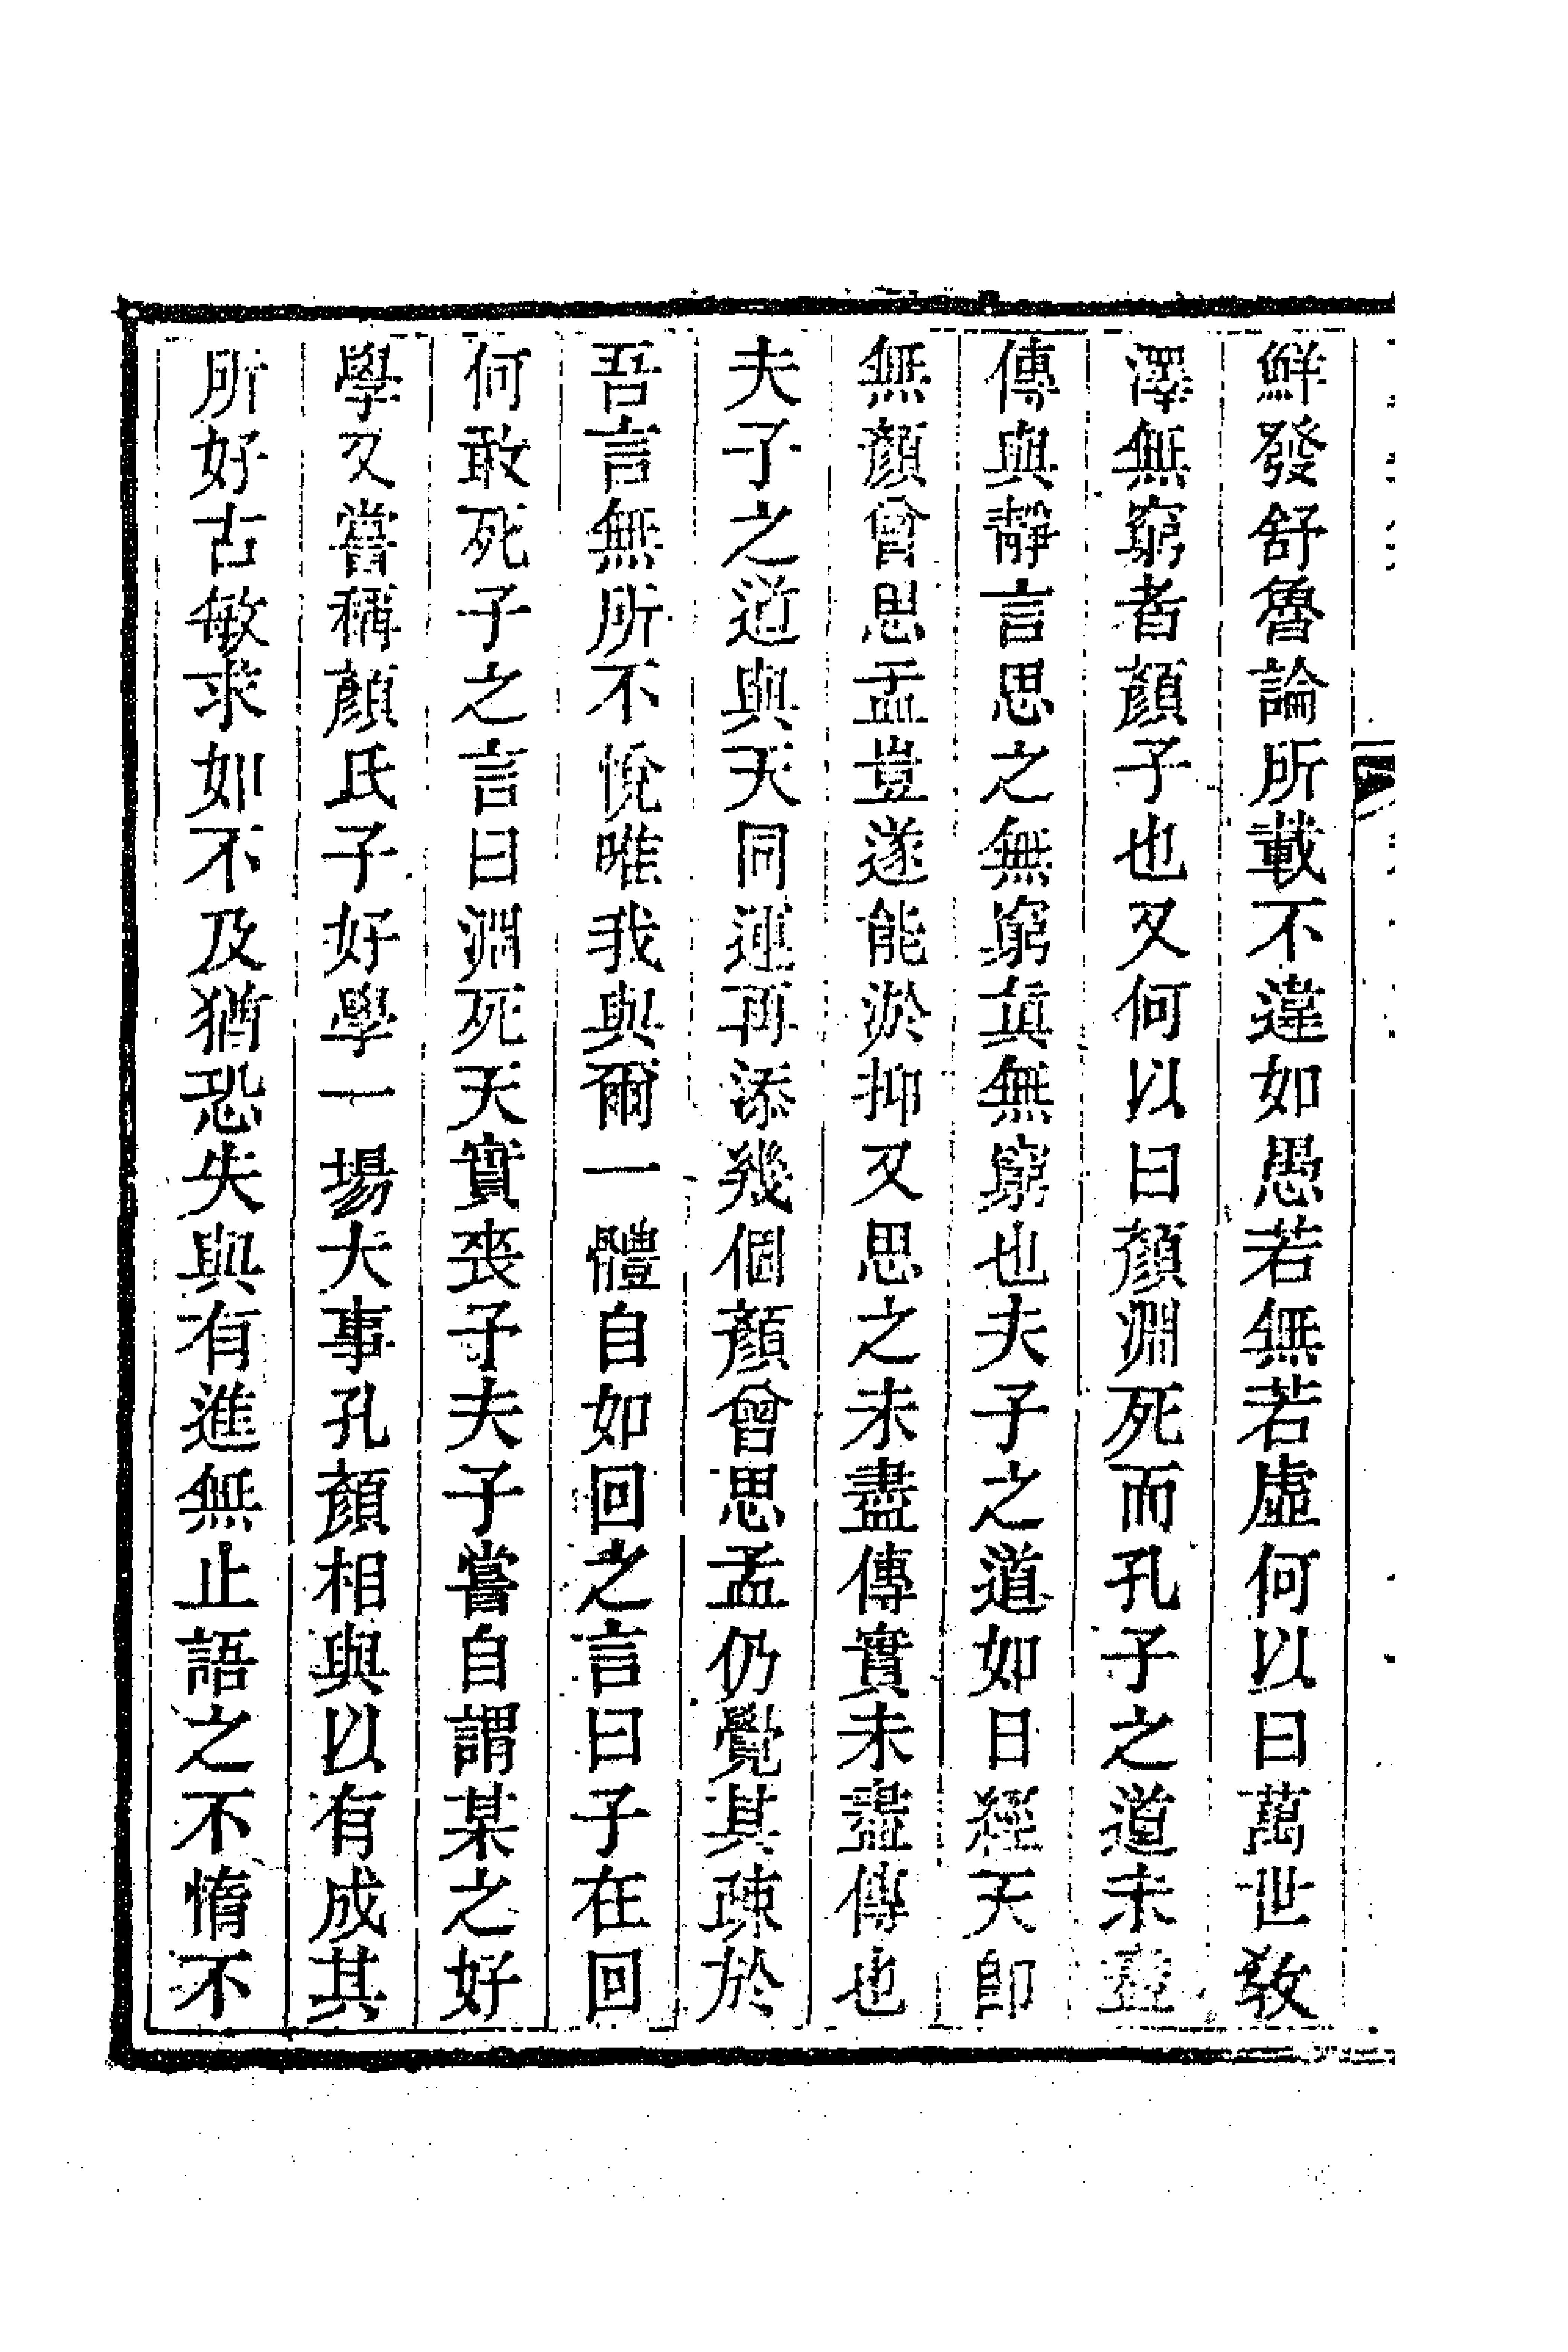 鮮發舒魯論所載不違如愚若無若虛何以曰萬世敎
澤無窮者顏子也又何以曰顏淵死而孔子之道未盡
傳與靜言思之無窮眞無窮也夫子之道如日經天卽
無顏曾思孟豈遂能淤抑又思之未盡傳實未盡傳也
夫子之道與天同運再添幾個顏曾思孟仍覺其疎於
吾言無所不悅唯我與爾一體自如回之言曰子在回
何敢死子之言曰淵死天實喪予夫子嘗自謂某之好
學又嘗稱顏氏子好學一場大事孔顏相與以有成其
所好古敏求如不及猶恐失與有進無止語之不惰不